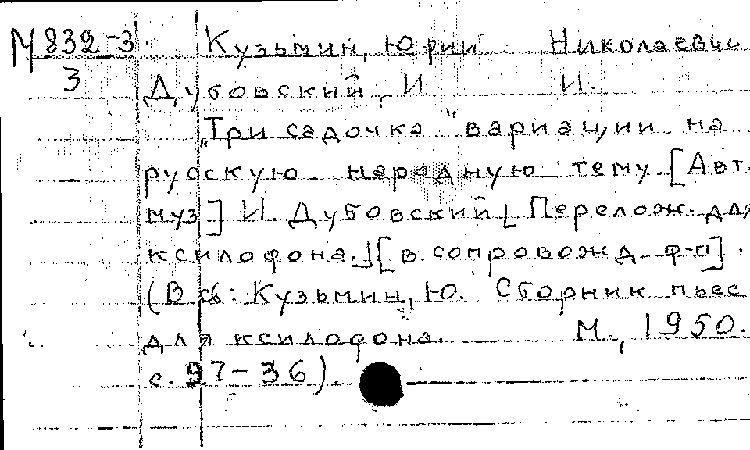 М 832-3 Кузьмин, Юрий Николаевич
3 Дубовский, И. И.
„Три садочка" вариации на
русскую народную тему [Авт.
муз] И. Дубовский [Перелож. для
ксилофона.] [в сопровожд. ф-п].
(В сб: Кузьмин, Ю. Сборник пьес
для ксилофона. М., 1950.
с. 27-36).